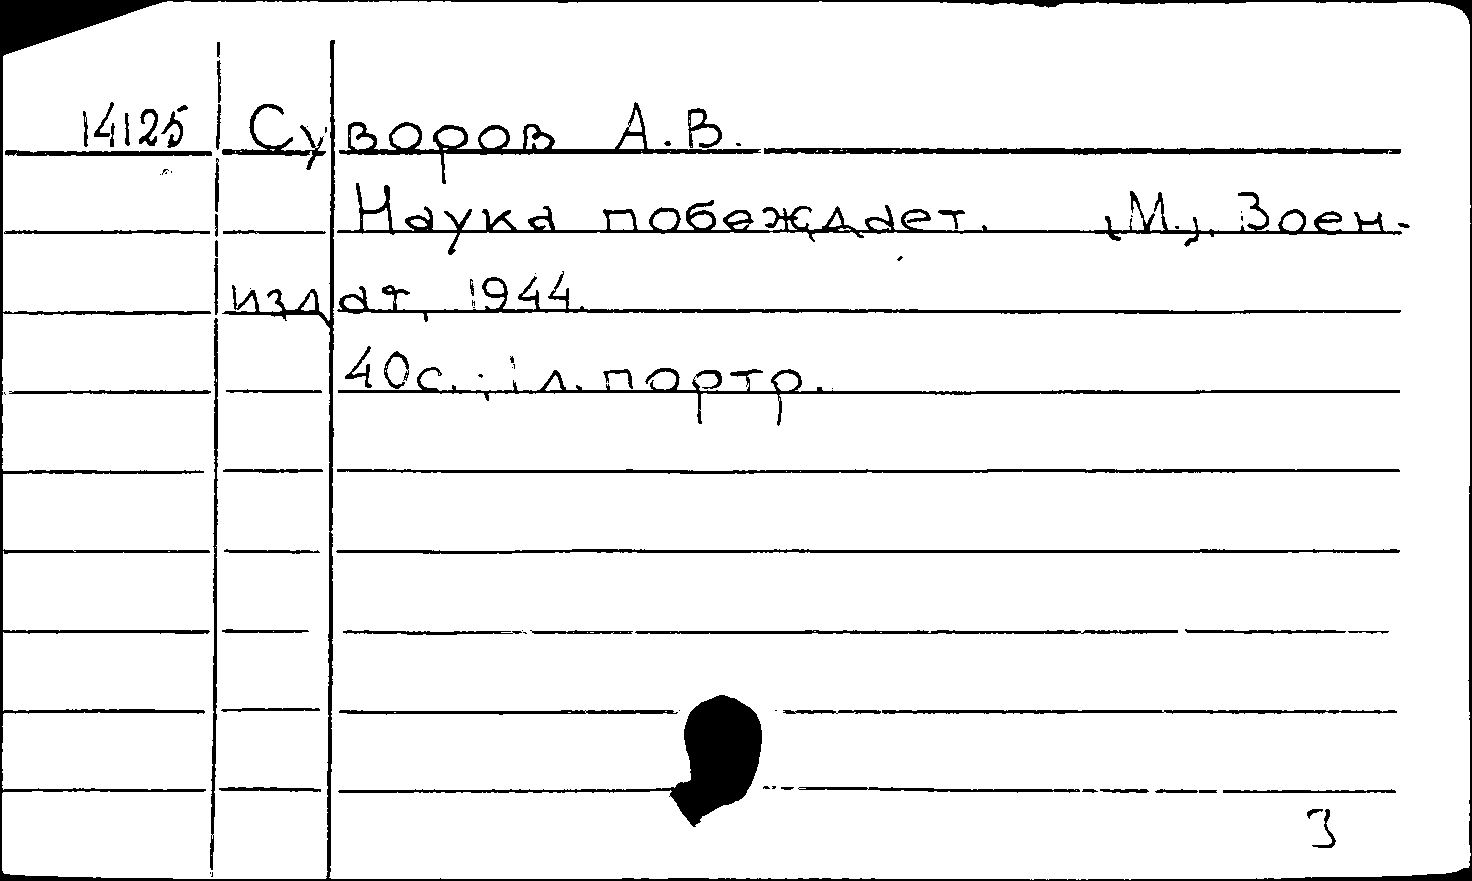 14125 Суворов А.В.
Наука побеждает. [М.], Воен-
издат, 1944.
40с.; іл. портр.
3